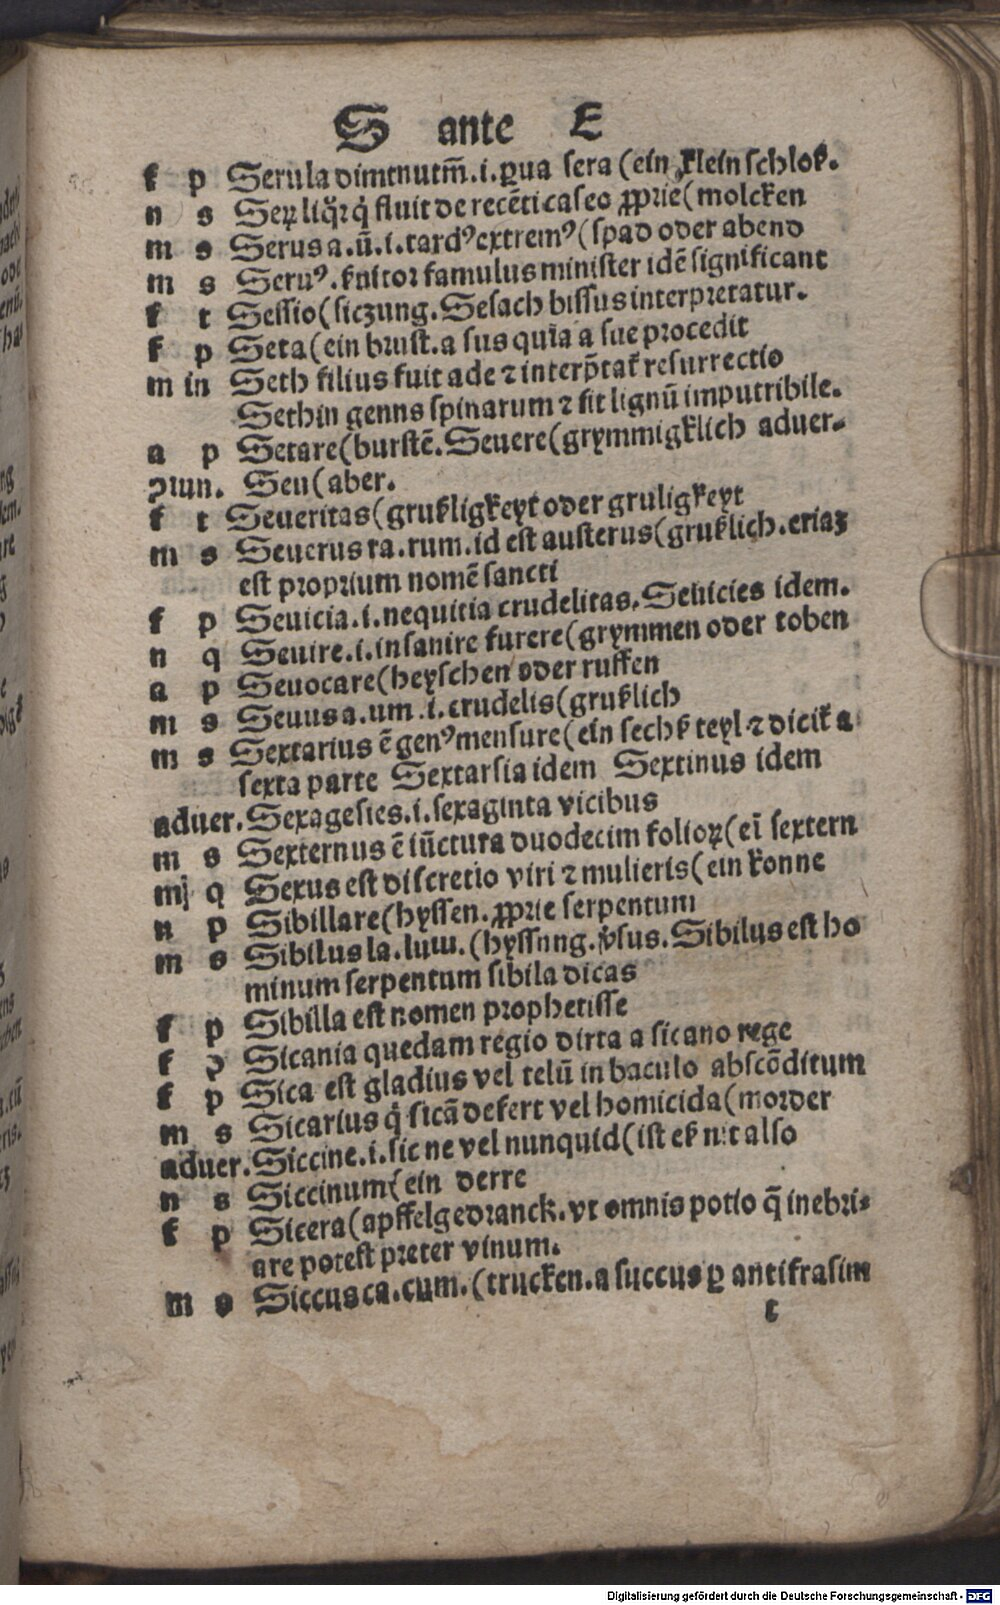 S ante E
f p Serula diminutiū̃.i.ꝑua sera (ein klein schloß.
n s Seꝝ liq̃ꝛ q̇ fluit de recēti caseo ꝓprie (molcken
m s Serus a.ū.i.tardꝰ extremꝰ (spad oder abend
m s Seruꝰ.ẜuitor famulus minister idē significant
f t Sessio (siczung. Sesach bissus interpretatur.
f p Seta (ein brust.a sus quia a sue procedit
m in Seth filius fuit ade ⁊ interp̃tat᷑ resurrectio
Sethin genns spinarum ⁊ fit lignū imputribile.
a p Setare (burstē. Seuere (grymmigklich aduer-
ↄiun. Seu (aber.
f t Seueritas (grußligkeyt oder gruligkeyt
m s Seuerus ra.rum.id est austerus (grußlich.eriaꝫ
est proprium nomē sancti
f p Seuicia.i.nequitia crudelitas. Seuicies idem.
n q Seuire.i.insanire furere (grymmen oder toben
a p Seuocare (heyschen oder ruffen
m s Seuus a.um.i.crudelis (grußlich
m s Sextarius ē genꝰ mensure (ein sechß teyl ⁊ dicit᷑ a
sexta parte Sextarsia idem Sextinus idem
aduer. Sexagesies.i.sexaginta vicibus
m s Sexternus ē iūctura duodecim folioꝝ (eī sextern
mj q Sexus est discretio viri ⁊ mulieris (ein konne
n p Sibillare (hyssen. ꝓprie serpentum
m s Sibilus la.lum. (hyssung. ꝟsus. Sibilus est ho
minum serpentum sibila dicas
f p Sibilla est nomen prophetisse
f ꝓ Sicania quedam regio dicta a sicano rege
f p Sica est gladius vel telū in baculo abscōditum
m s Sicarius q̇ sicā defert vel homicida (morder
aduer. Siccine.i.sic ne vel nunquid (ist eß nit also
n s Siccinum (ein derre
f p Sicera (apffelgedranck.vt omnis potio q̄ inebri-
are potest preter vinum.
m s Siccus ca.cum. (trucken.a succus ꝑ antifrasim
t
Digitalisierung gefördert durch die Deutsche Forschungsgemeinschaft - DFG